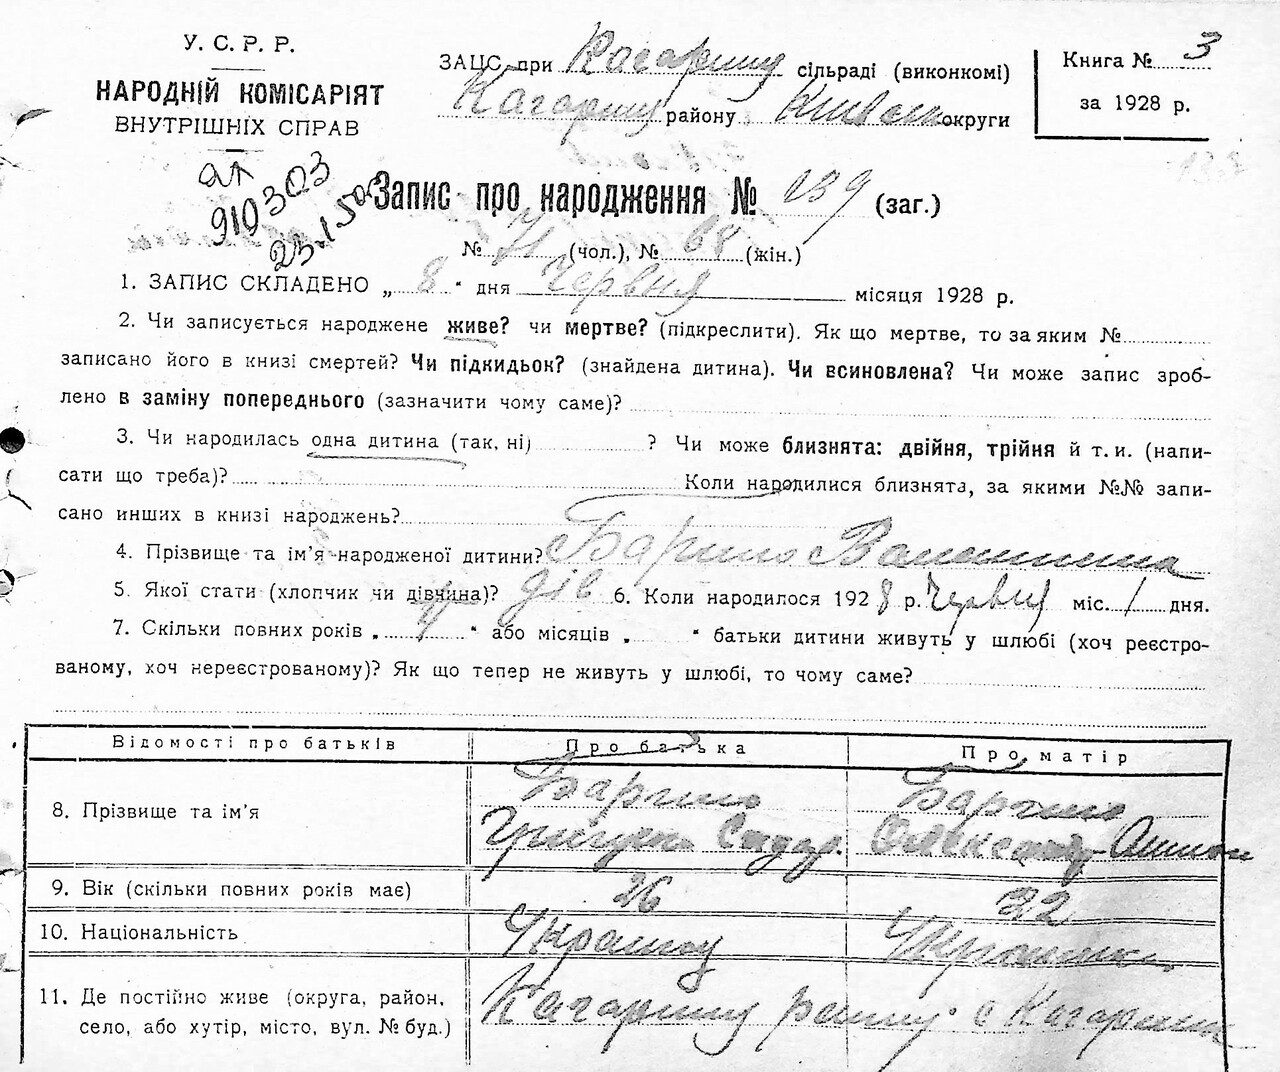 У. С. Р. Р.
НАРОДНІЙ КОМІСАРІЯТ
ВНУТРІШНІХ СПРАВ
ЗАЦС при Кагарлиц сільраді (виконкомі)
Кагарлиц району Київськ округи
Книга № 3
за 1928 р.
910303
Запис про народження № 139 (заг.)
№ 71 (чол.), № 68 (жін.)
1. ЗАПИС СКЛАДЕНО „ 8 “ дня Червня місяця 1928 р.
2. Чи записується народжене живе? чи мертве? (підкреслити). Як що мертве, то за яким №
записано його в книзі смертей? Чи підкидьок? (знайдена дитина). Чи всиновлена? Чи може запис зроб-
лено в заміну попереднього (зазначити чому саме)?
3. Чи народилась одна дитина (так, ні) ? Чи може близнята: двійня, трійня й т. и. (напи-
сати що треба)? Коли народилися близнята, за якими №№ запи-
сано инших в книзі народжень?
4. Прізвище та ім’я народженої дитини? Валентина
5. Якої стати (хлопчик чи дівчина)? дів 6. Коли народилося 1928 р. Червня міс. 1 дня.
7. Скільки повних років „ “ або місяців „ “ батьки дитини живуть у шлюбі (хоч реєстро-
ваному, хоч нереєстрованому)? Як що тепер не живуть у шлюбі, то чому саме?
Відомості про батьків Про батька Про матір
8. Прізвище та ім’я
9. Вік (скільки повних років має) 26 32
10. Національність Українц Українка
11. Де постійно живе (округа, район,
село, або хутір, місто, вул. № буд.)